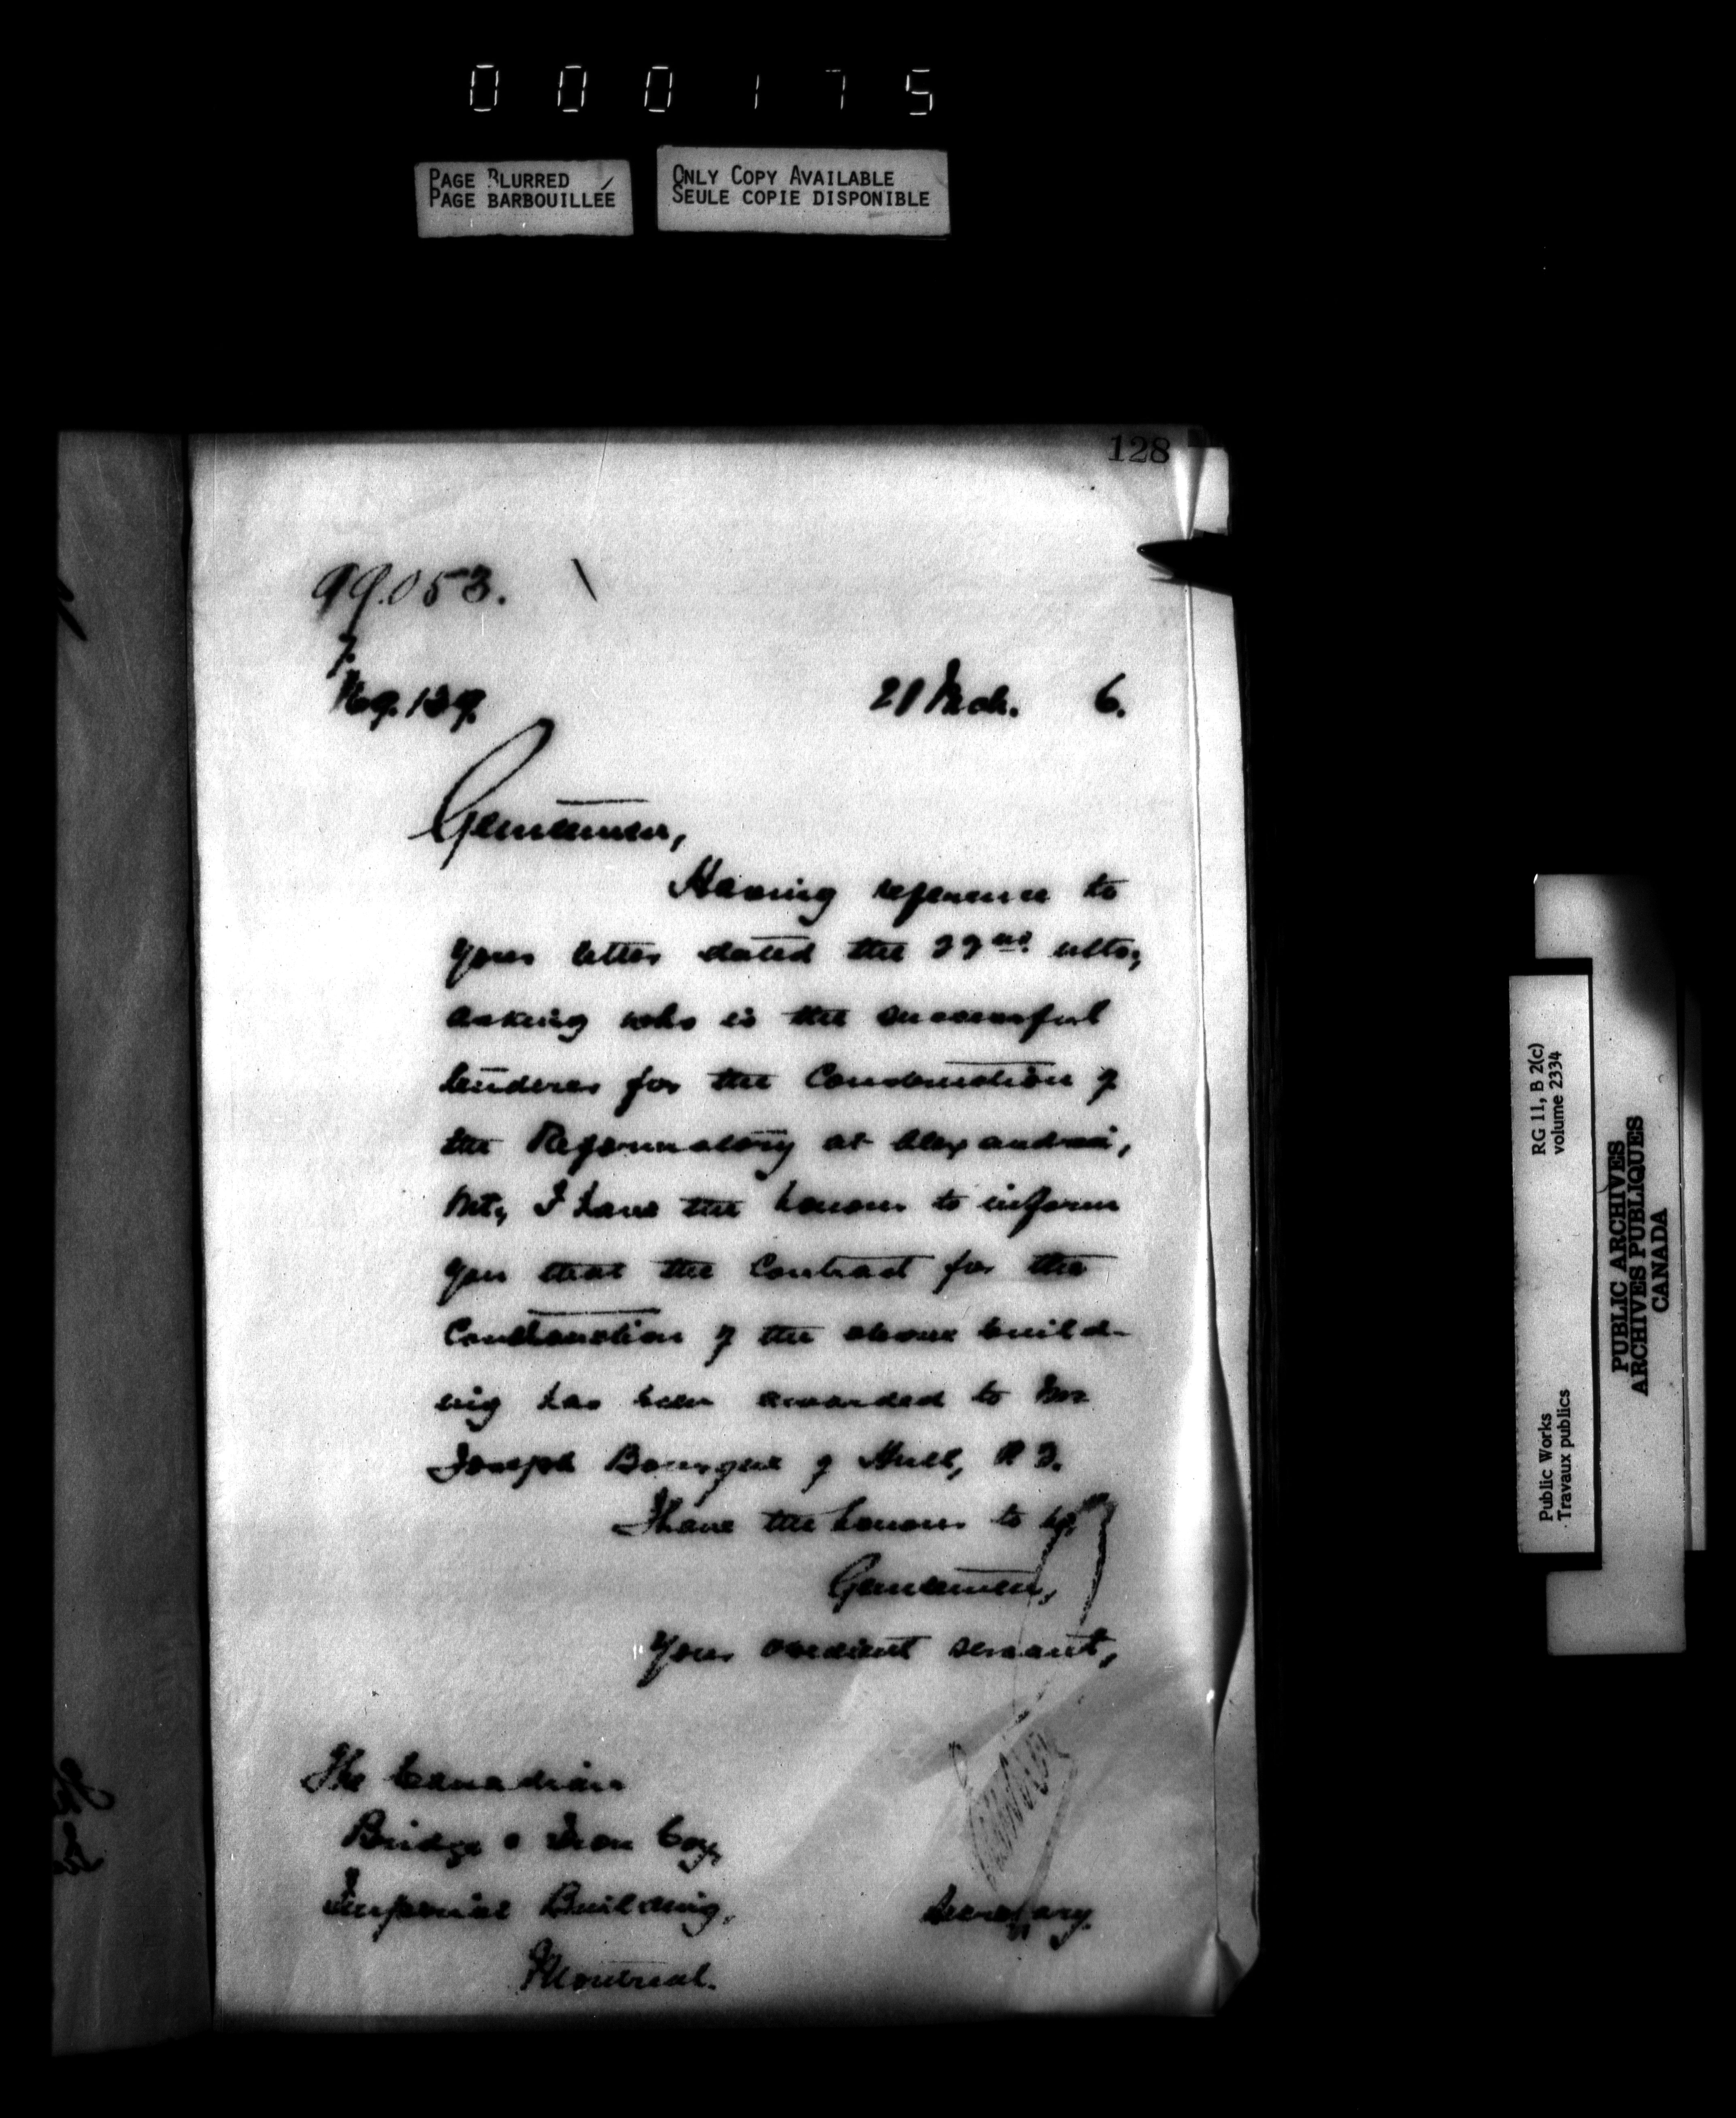 000175
PAGE BLURRED
PAGE BARBOUILLÉE
ONLY COPY AVAILABLE
SEULE COPIE DISPONIBLE
128
99.053.
7.
21 Mch. 6.
Gentlemen,
Having reference to
your letter dated the 22nd ulto,
asking who is the successful
tenderer for the Construction of
the Reformatory at Alexandria,
Ont, I have the honour to inform
you that the Contract for the
Construction of the above build-
ing has been awarded to Mr
Joseph Bourque of Hull, P. Q.
I have the honour to be,
Gentlemen,
Your obedient servant,
The Canadian
Bridge & Iron Coy,
Imperial Building,
Montreal.
Secretary.
Public Works
Travaux publics
RG 11, B 2(c)
volume 2334
PUBLIC ARCHIVES
ARCHIVES PUBLIQUES
CANADA